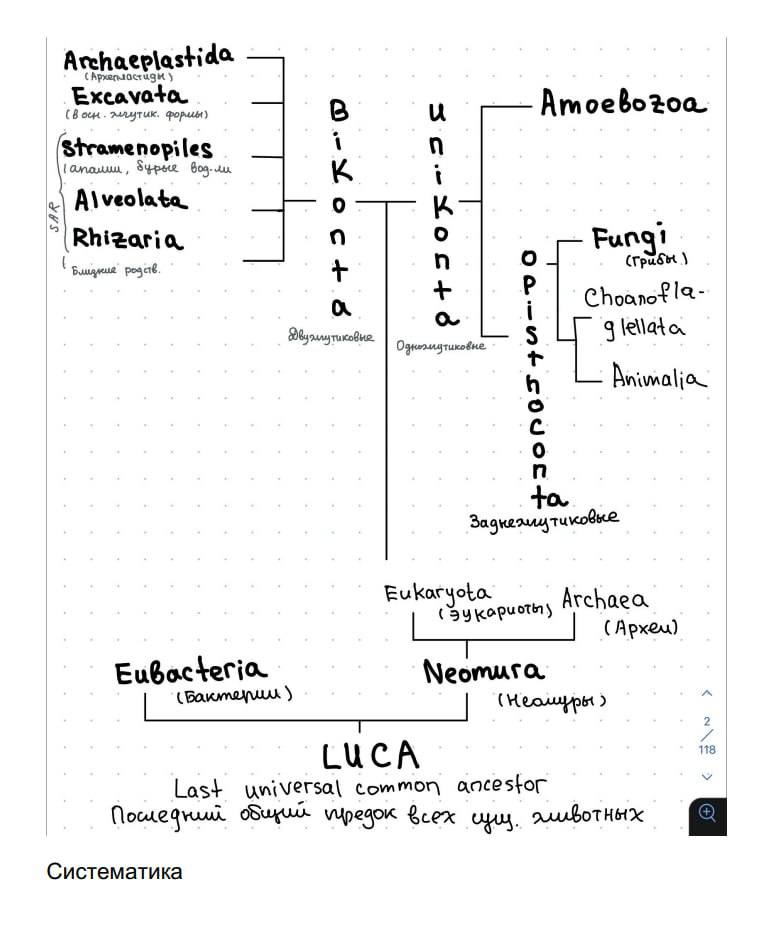 Archaeplastida
(Архепластиды)
Excavata
(В осн. жгутик. формы)
SAR
Stramenopiles
(опалин, бурые вод-ли
Alveolata
Rhizaria
Близкие родств.
Bikonta
Двужгутиковые
Unikonta
Одножгутиковые
Amoebozoa
Opisthoconta
Заднежгутиковые
Fungi
(Грибы)
Choanofla-
glellata
Animalia
Eukaryota
(Эукариоты)
Archaea
(Археи)
Eubacteria
(Бактерии)
Neomura
(Неомуры)
LUCA
Last universal common ancestor
Последний общий предок всех сущ. животных
2
/
118
Систематика